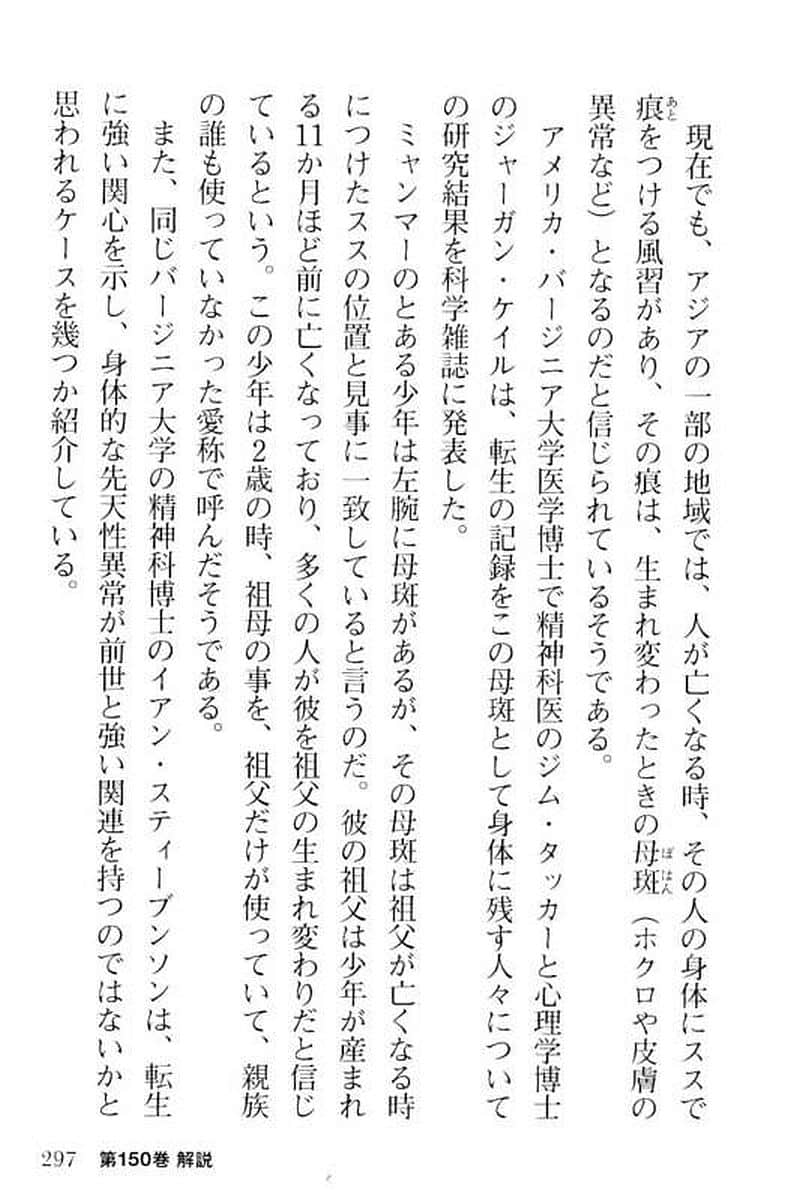 現在でも、アジアの一部の地域では、人が亡くなる時、その人の身体にススで
痕をつける風習があり、その痕は、生まれ変わったときの母斑（ホクロや皮膚の
異常など）となるのだと信じられているそうである。
アメリカ・バージニア大学医学博士で精神科医のジム・タッカーと心理学博士
のジャーガン・ケイルは、転生の記録をこの母斑として身体に残す人々について
の研究結果を科学雑誌に発表した。
ミャンマーのとある少年は左腕に母斑があるが、その母斑は祖父が亡くなる時
につけたススの位置と見事に一致していると言うのだ。彼の祖父は少年が産まれ
る11か月ほど前に亡くなっており、多くの人が彼を祖父の生まれ変わりだと信じ
ているという。この少年は2歳の時、祖母の事を、祖父だけが使っていて、親族
の誰も使っていなかった愛称で呼んだそうである。
また、同じバージニア大学の精神科博士のイアン・スティーブンソンは、転生
に強い関心を示し、身体的な先天性異常が前世と強い関連を持つのではないかと
思われるケースを幾つか紹介している。
297 第150巻 解説